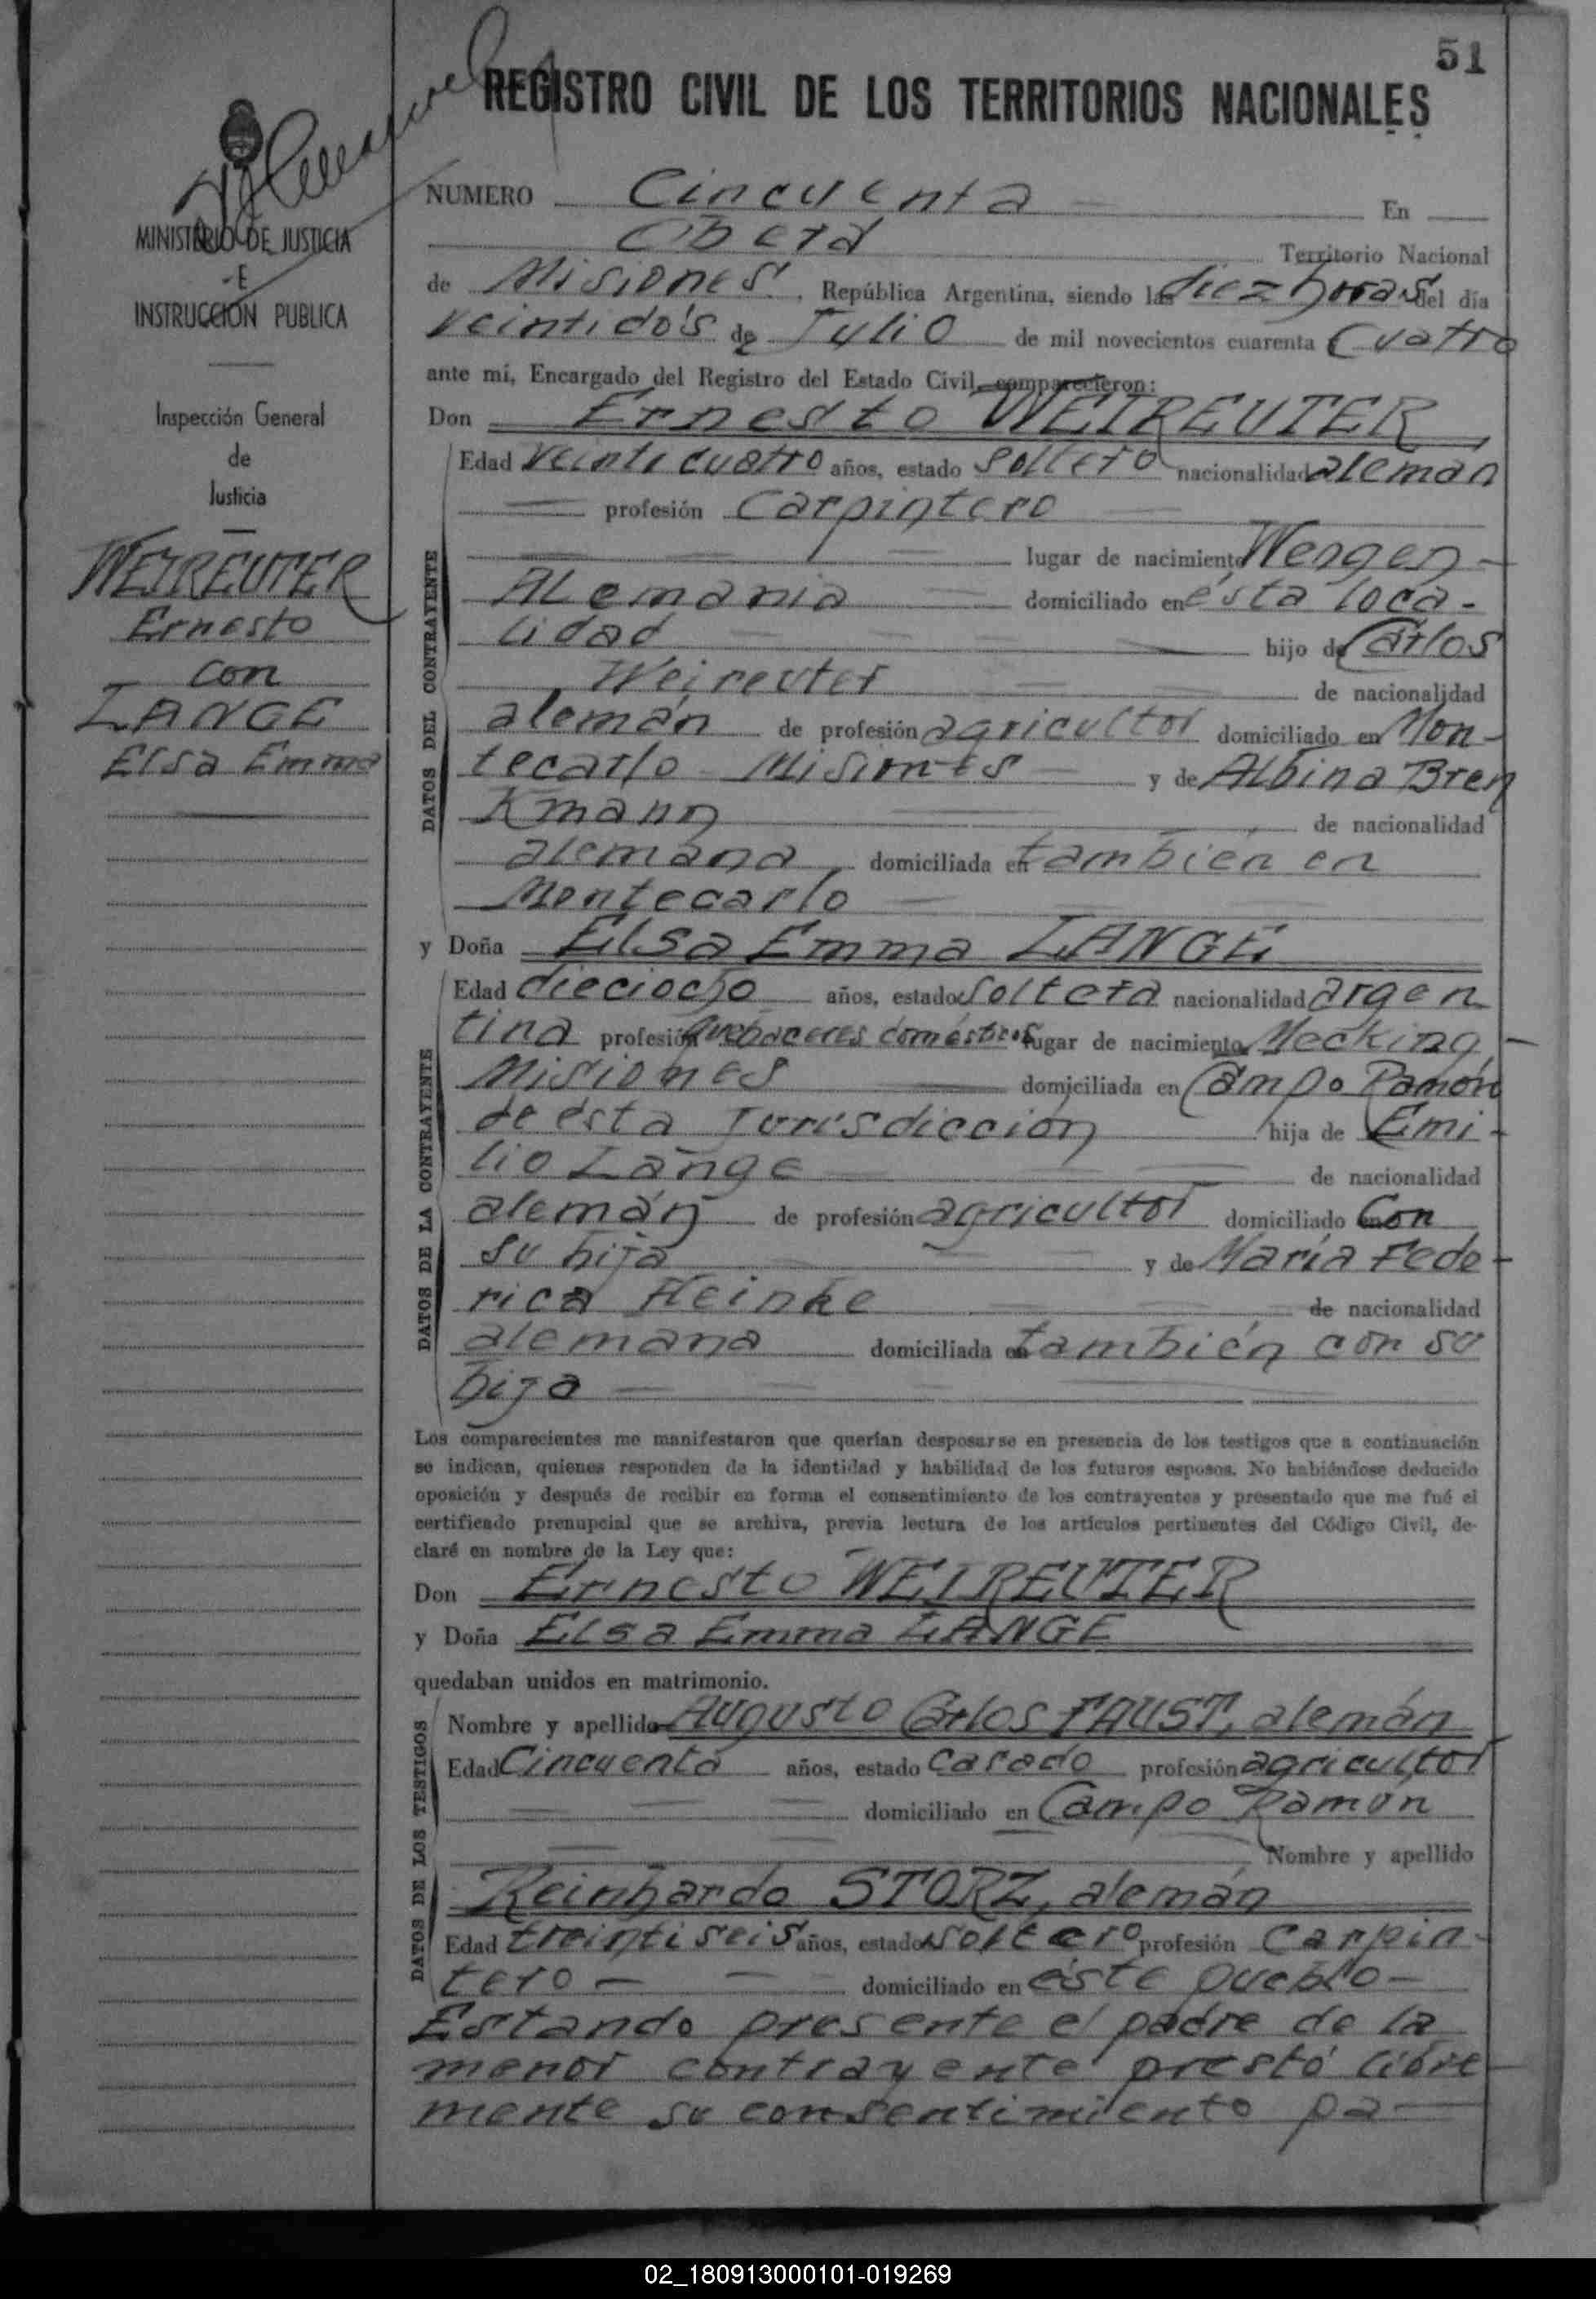 51
REGISTRO CIVIL DE LOS TERRITORIOS NACIONALES
MINISTERIO DE JUSTICIA
E
INSTRUCCIÓN PUBLICA
Inspección General
de
Justicia
WEIREUTER
Ernesto
con
LANGE
Elsa Emma
NUMERO Cincuenta En
Oberá Territorio Nacional
de Misiones, República Argentina, siendo las diez horas del día
veintidós de Julio de mil novecientos cuarenta Cuatro
ante mí, Encargado del Registro del Estado Civil, comparecieron:
Don Ernesto WEIREUTER
DATOS DEL CONTRAYENTE
Edad veinticuatro años, estado soltero nacionalidad alemán
profesión Carpintero
lugar de nacimiento Wengen-
Alemania domiciliado en ésta loca-
lidad hijo de Carlos
Weireuter de nacionalidad
alemán de profesión agricultor domiciliado en Mon-
tecarlo Misiones y de Albina Bren
Kmann de nacionalidad
alemana domiciliada en también en
Montecarlo
y Doña Elsa Emma LANGE
DATOS DE LA CONTRAYENTE
Edad dieciocho años, estado soltera nacionalidad argen
tina profesión quehaceres domésticos lugar de nacimiento Mecking,-
Misiones domiciliada en Campo Ramón
de ésta Jurisdicción hija de Emi-
lio Lange de nacionalidad
alemán de profesión agricultor domiciliado en Con
su hija y de María Fede-
rica Heinke de nacionalidad
alemana domiciliada en también con su
hija
Los comparecientes me manifestaron que querían desposarse en presencia de los testigos que a continuación
se indican, quienes responden de la identidad y habilidad de los futuros esposos. No habiéndose deducido
oposición y después de recibir en forma el consentimiento de los contrayentes y presentado que me fué el
certificado prenupcial que se archiva, previa lectura de los artículos pertinentes del Código Civil, de-
claré en nombre de la Ley que:
Don Ernesto WEIREUTER
y Doña Elsa Emma LANGE
quedaban unidos en matrimonio.
DATOS DE LOS TESTIGOS
Nombre y apellido Augusto Carlos FAUST, alemán
Edad Cincuenta años, estado casado profesión agricultor
domiciliado en Campo Ramón
Nombre y apellido
Reinhardo STORZ, alemán
Edad treintiseis años, estado soltero profesión Carpin-
tero- domiciliado en éste pueblo-
Estando presente el padre de la
menor contrayente prestó libre
mente su consentimiento pa-
02_180913000101-019269